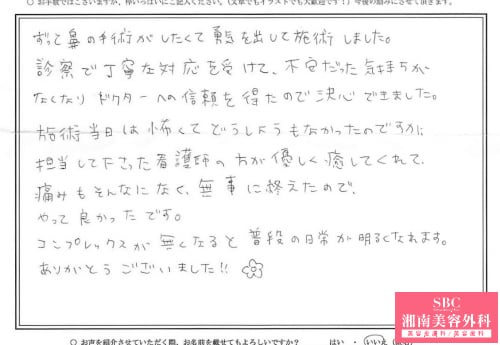 ○ お手数ではございますが、枠いっぱいにご記入ください。(文章でもイラストでも大歓迎です!)今後の励みにさせて頂きます。
ずっと鼻の手術がしたくて勇気を出して施術しました。
診察で丁寧な対応を受けて、不安だった気持ちが
なくなりドクターへの信頼を得たので決心できました。
施術当日は怖くてどうしようもなかったのですが、
担当して下さった看護師の方が優しく癒してくれて、
痛みもそんなになく、無事に終えたので、
やって良かったです。
コンプレックスが無くなると普段の日常が明るくなれます。
ありがとうございました!!
SBC
湘南美容外科
美容皮膚科/美容歯科
○ お声を紹介させていただく際、お名前を載せてもよろしいですか? はい ・ いいえ